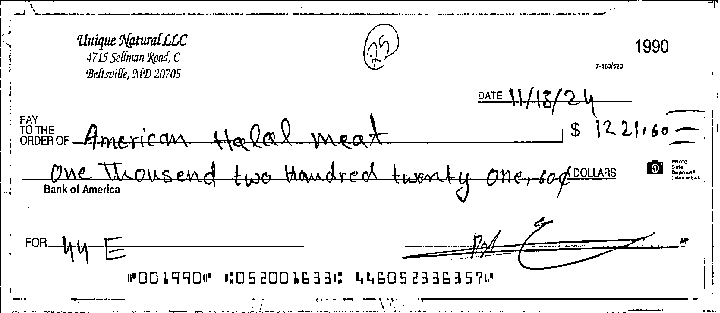 Unique Natural LLC
4715 Sellman Road, C
Beltsville, MD 20705
25
1990
7-163/520
DATE 11/18/24
PAY
TO THE
ORDER OF American Halal meat $ 1221.60
One Thousend two Handred twenty one, 60¢ DOLLARS
Bank of America
FOR 44 E
⑈001990⑈ ⑆052001633⑆ 446052336357⑈